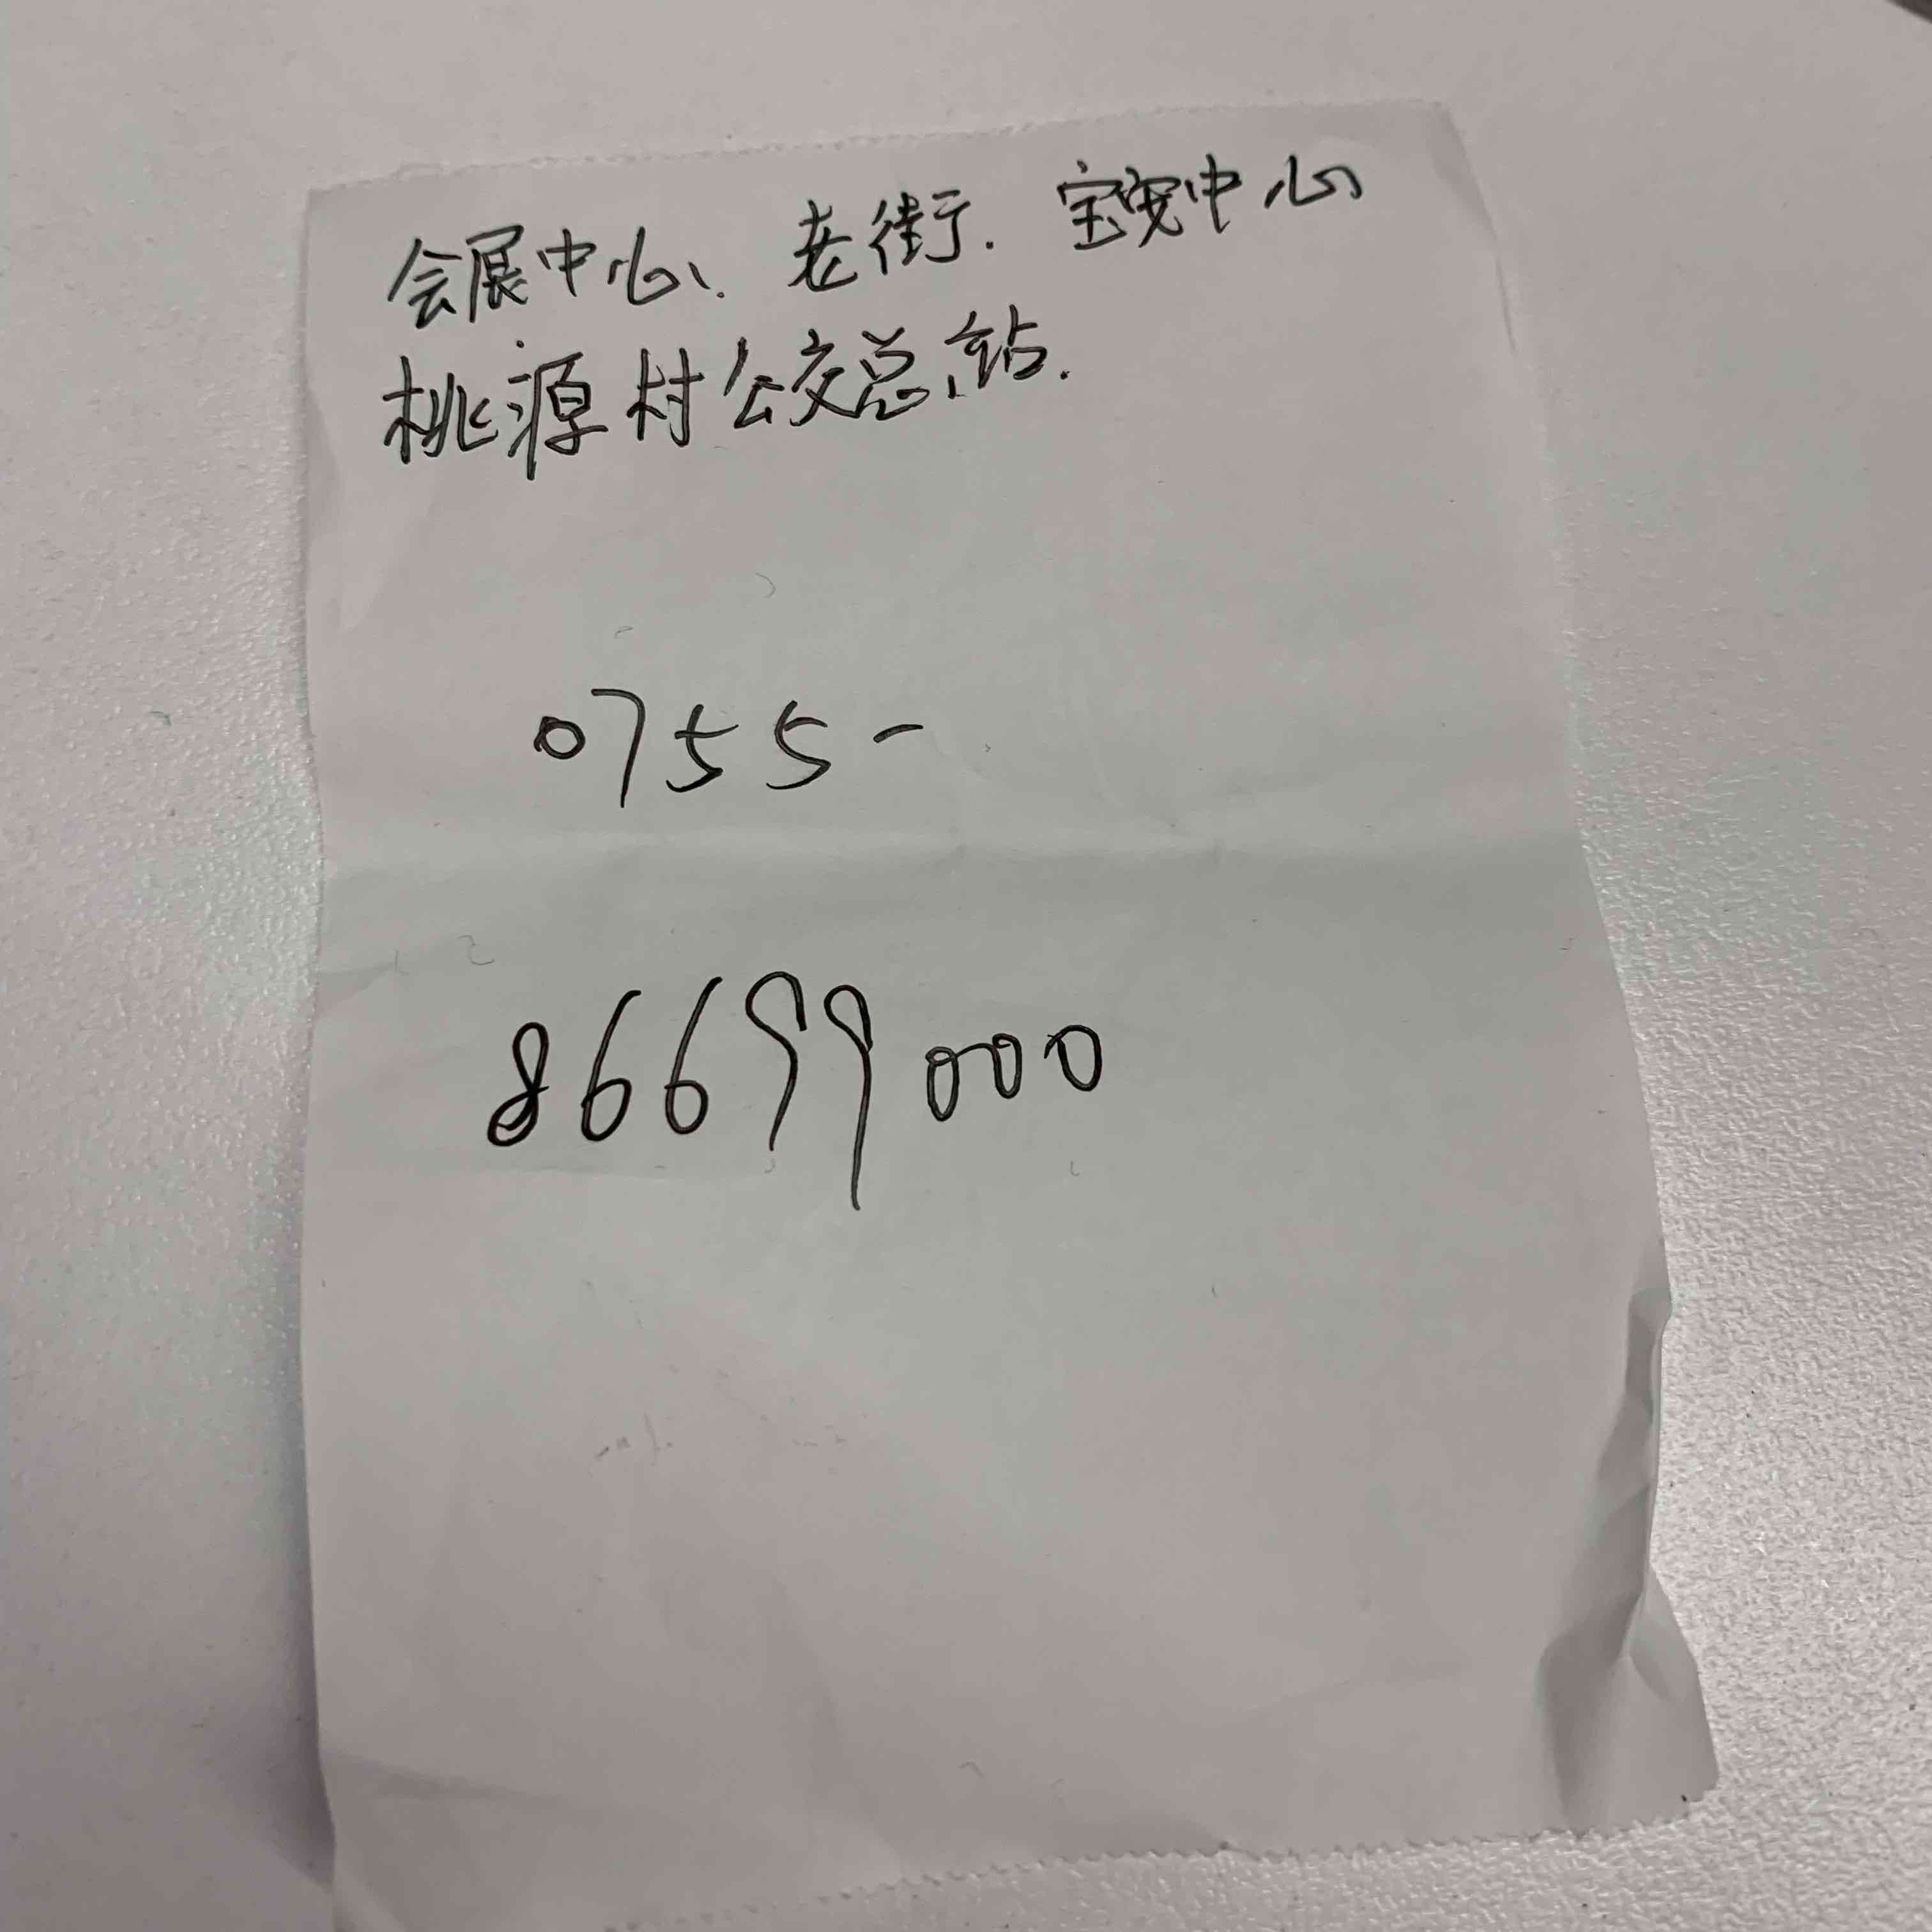 会展中心、老街.宝安中心
桃源村公交总站.
0755-
86699000